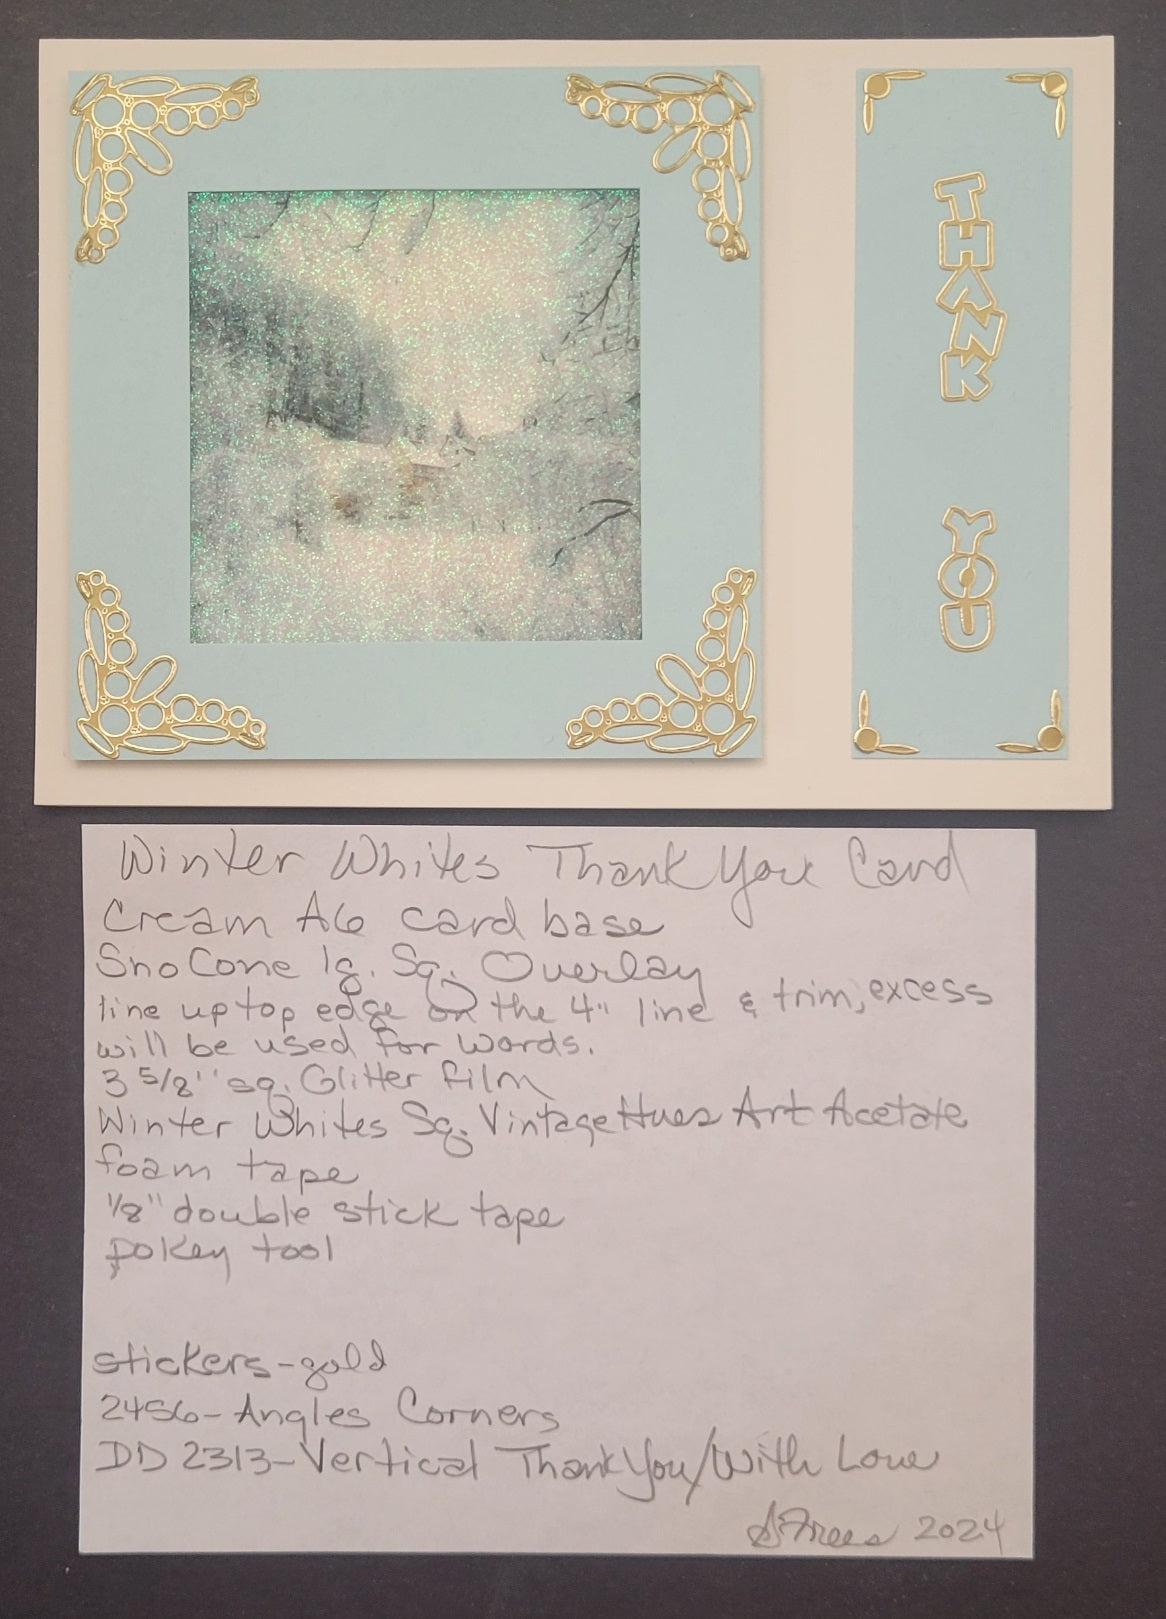 THANK
YOU
Winter Whites Thank You Card
Cream A6 card base
Sno Cone lg. Sq. Overlay
line up top edge on the 4" line & trim, excess
will be used for words.
3 5/8" sq. Glitter film
Winter Whites Sq. Vintage Hues Art Acetate
foam tape
1/8" double stick tape
pokey tool
stickers-gold
2456-Angles Corners
DD 2313-Vertical Thank You/With Love
2024